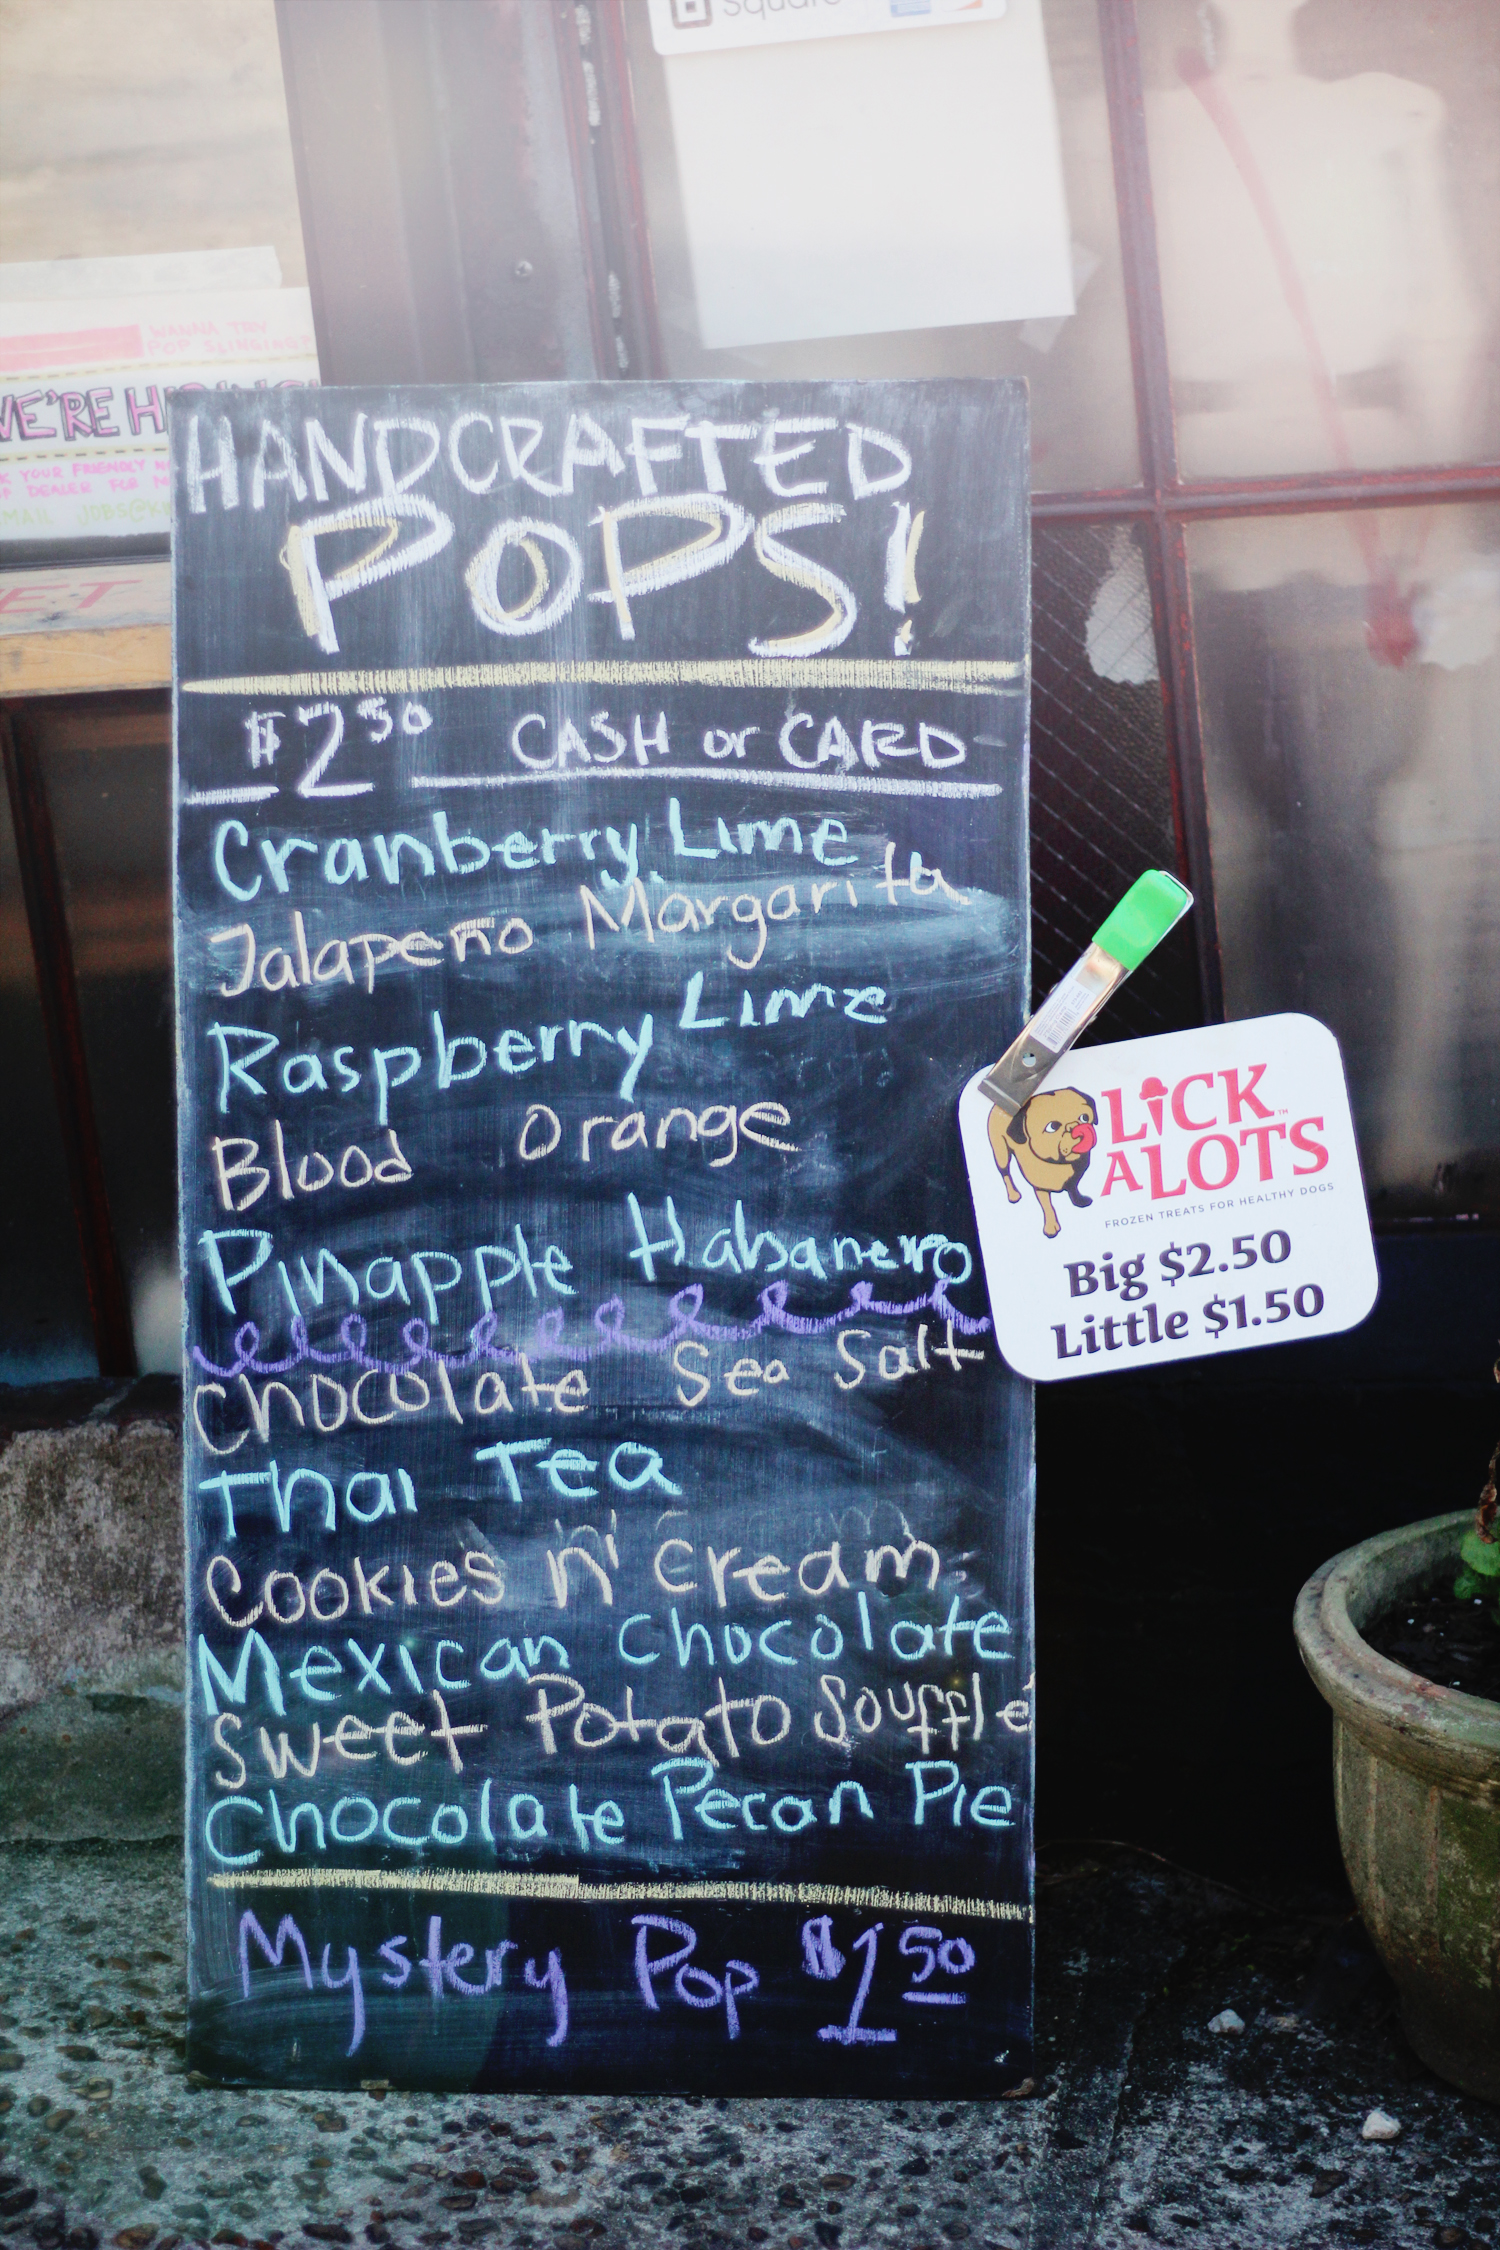 Square
WANNA TRY
POP SLINGING?
WE'RE HIRING!
YOUR FRIENDLY
DEALER FOR
JOBS@
ET
HANDCRAFTED
POPS!
$2.50 CASH or CARD
Cranberry Lime
Jalapeño Margarita
Raspberry Lime
Blood Orange
Pinapple Habanero
Chocolate Sea Salt
Thai Tea
Cookies 'n' Cream
Mexican Chocolate
Sweet Potato Soufflé
Chocolate Pecan Pie
Mystery Pop $1.50
LiCK
ALOTS™
FROZEN TREATS FOR HEALTHY DOGS
Big $2.50
Little $1.50